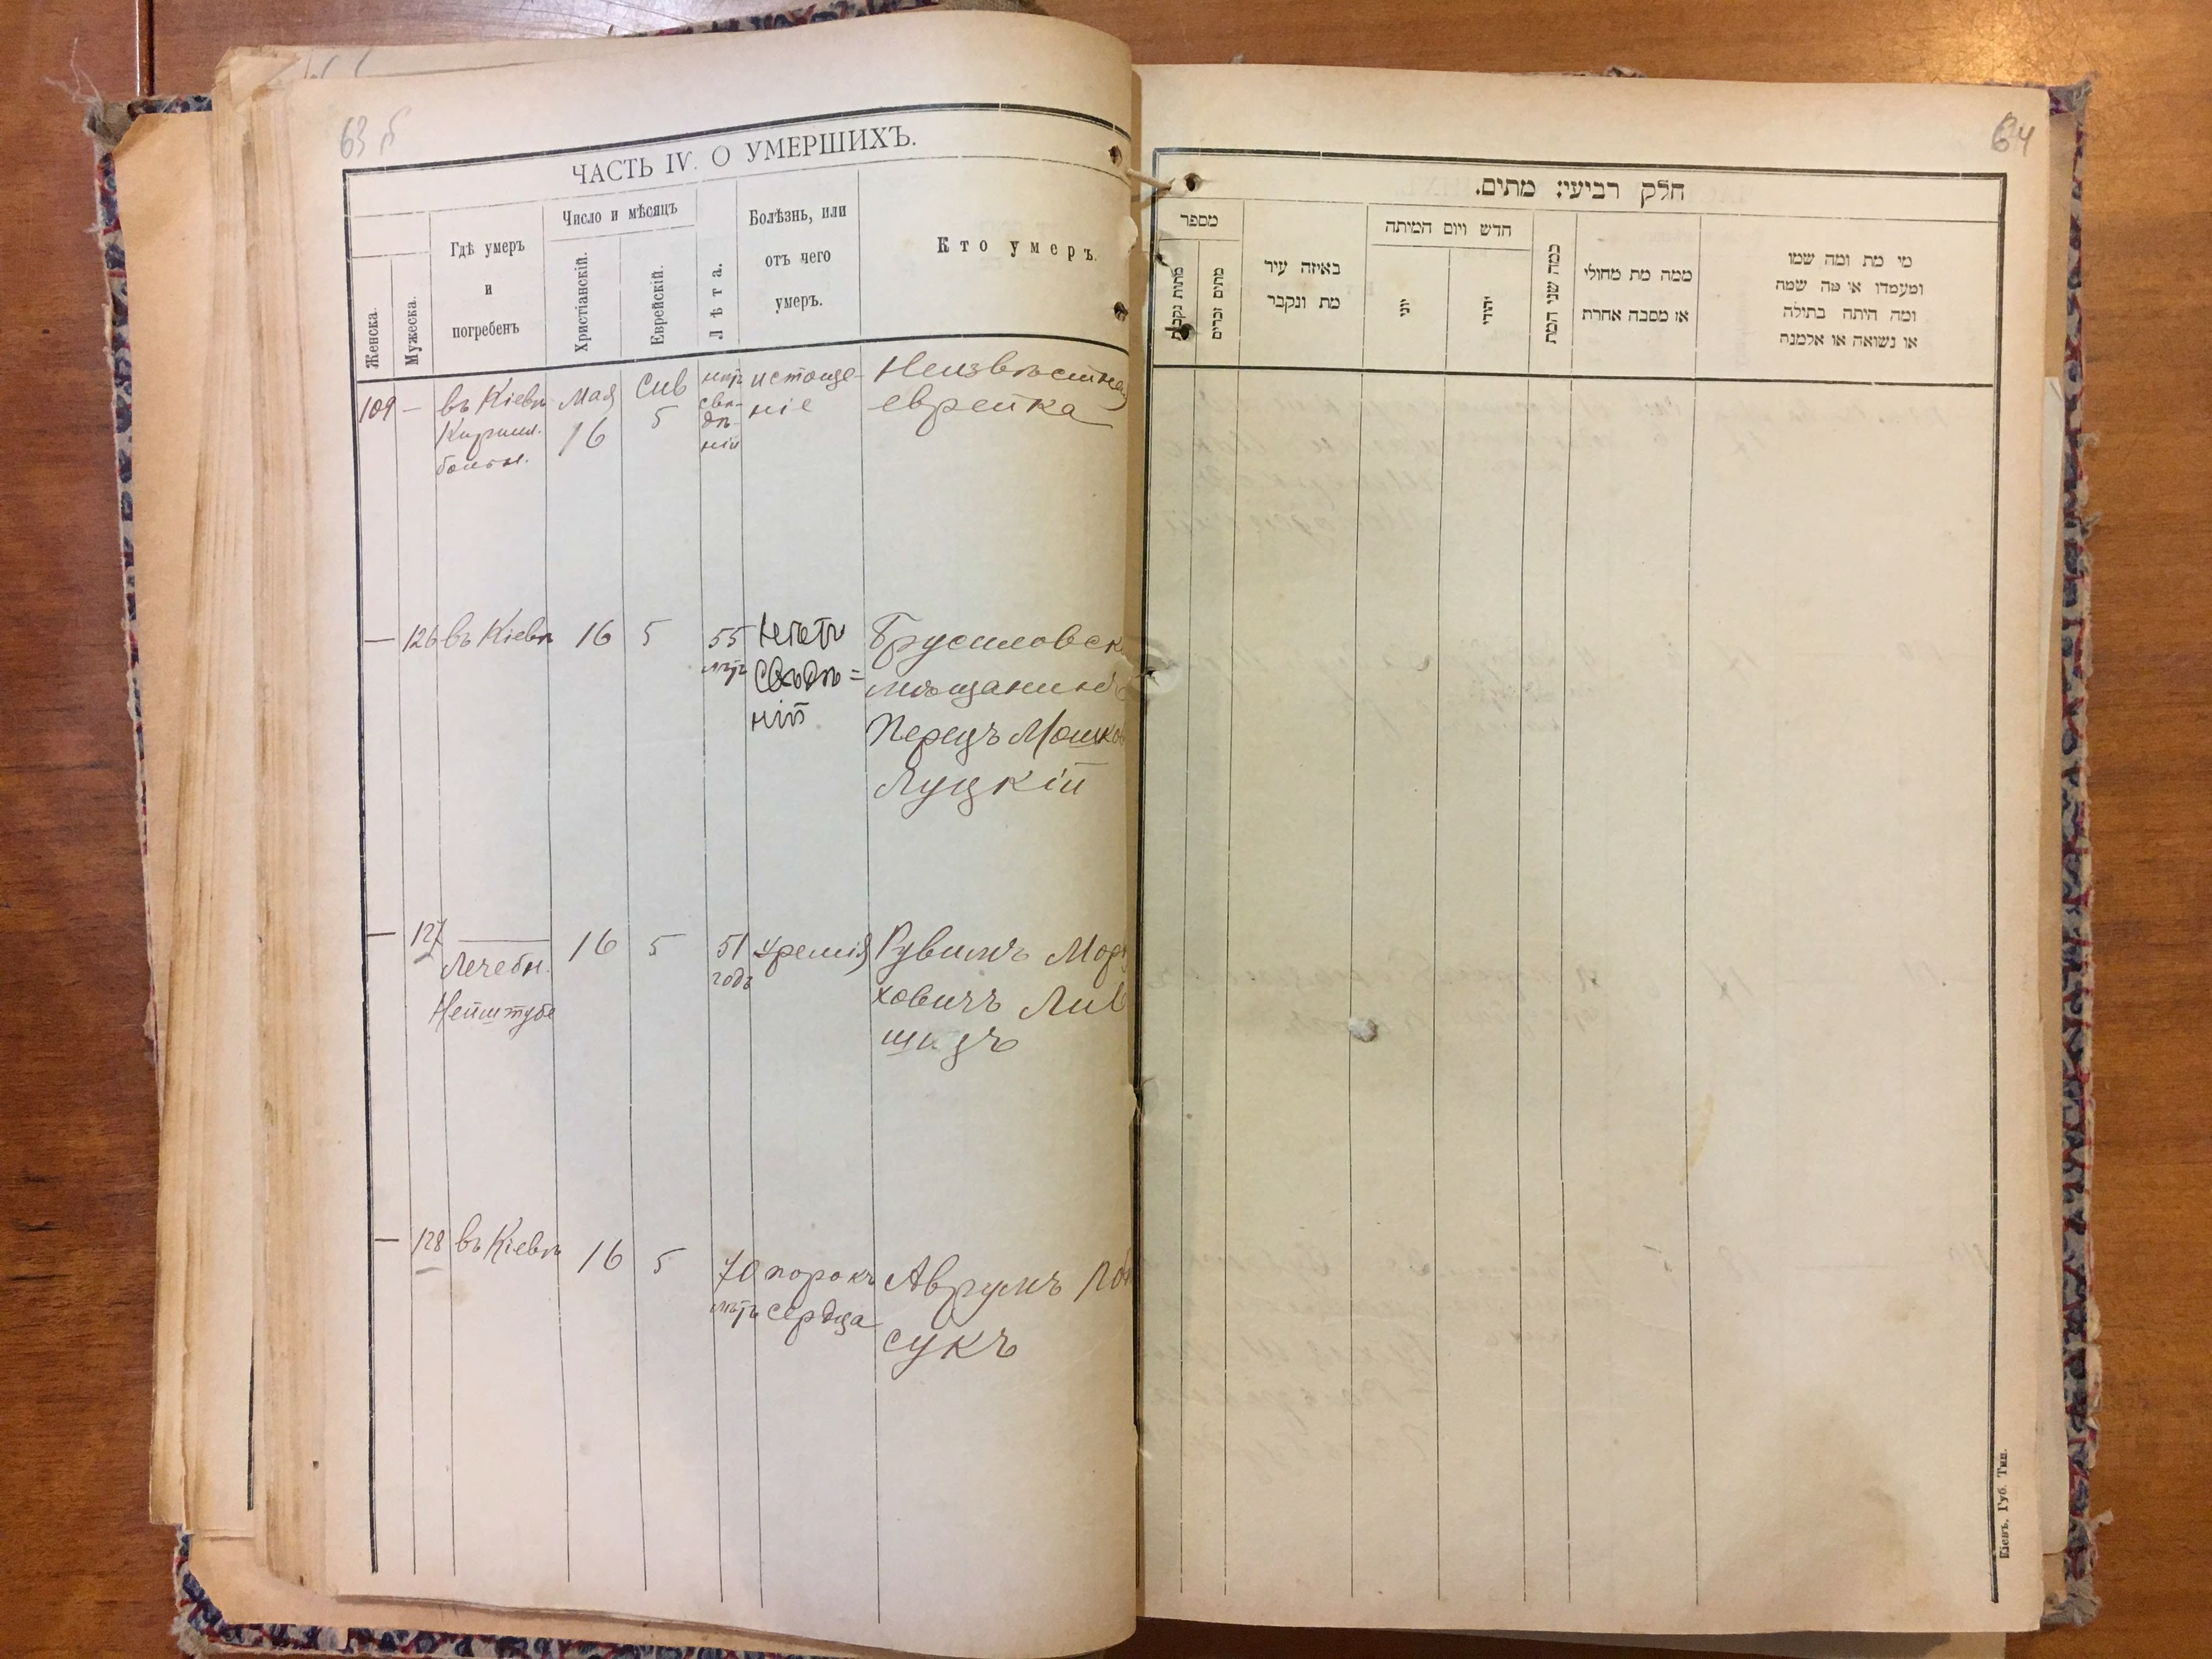 63 б
ЧАСТЬ IV. О УМЕРШИХЪ.
Женска.
Мужеска.
Гдѣ умеръ
и
погребенъ
Число и мѣсяцъ
Христіанскій.
Еврейскій.
Лѣта.
Болѣзнь, или
отъ чего
умеръ.
Кто умеръ.
109 —
въ Кіевѣ
Кирилл.
больн.
Мая
16
Сив
5
нѣтъ
свѣ-
дѣ-
ній
истоще-
ніе
Неизвѣстная
еврейка
— 126
въ Кіевѣ
16
5
55
лѣтъ
Нѣтъ
свѣдѣ=
ній
Брусиловск
мѣщанинъ
Перецъ Мошков
Луцкій
— 127
—
Лечебн.
Нейштубе
16
5
51
годъ
уремія
Рувинъ Мор
ховичъ Лив
шицъ
— 128
въ Кіевѣ
16
5
70
лѣтъ
порокъ
сердца
Аврумъ
сукъ
64
חלק רביעי: מתים.
מספר
מתות נקבות
מתים זכרים
באיזה עיר
מת ונקבר
חדש ויום המיתה
יוני
יהודי
כמה שני המת
ממה מת מחולי
או מסבה אחרת
מי מת ומה שמו
ומעמדו או מה שמה
ומה היתה בתולה
או נשואה או אלמנה
Кіевъ, Губ. Тип.